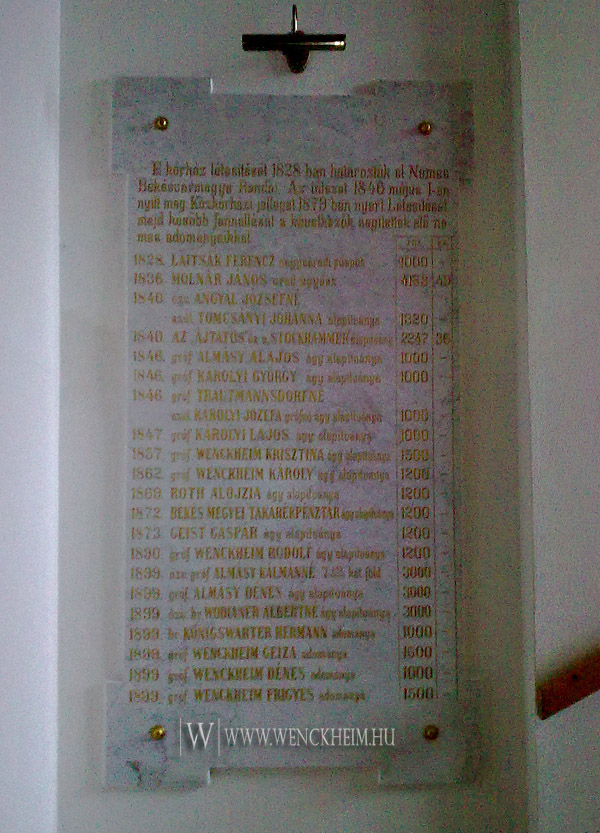 E kórház létesítését 1828 ban határozták el Nemes
Békésvármegye Rendei. Az intézet 1846 május 1-én
nyilt meg Közkórházi jelleget 1879 ben nyert Létesítését
majd később fennállását a következők segítették elő ne
mes adományaikkal
1828. LAJTSÁK FERENCZ nagyváradi püspök 1000 -
1836. MOLNÁR JÁNOS 4133 49
1840. özv. ANGYAL JÓZSEFNÉ
szül. TOMCSÁNYI JOHANNA alapítványa 1320 -
1840. AZ „ÁJTATOS” és a „STOCKHAMMER” alapítvány 2247 36
1846. gróf ALMÁSY ALAJOS ágy alapítványa 1000 -
1846. gróf KÁROLYI GYÖRGY ágy alapítványa 1000 -
1846. gróf TRAUTMANNSDORFNÉ
szül. KÁROLYI JOZEFA grófnő ágy alapítványa 1000 -
1847. gróf KÁROLYI LAJOS ágy alapítványa 1000 -
1857. gróf WENCKHEIM KRISZTINA ágy alapítványa 1500 -
1862. gróf WENCKHEIM KÁROLY ágy alapítványa 1200 -
1869. ROTH ALOJZIA ágy alapítványa 1200 -
1872. BÉKÉS MEGYEI TAKARÉKPÉNZTÁR ágy alapítványa 1200 -
1873. GEIST GÁSPÁR ágy alapítványa 1200 -
1890. gróf WENCKHEIM RUDOLF ágy alapítványa 1200 -
1899. özv. gróf ALMÁSY KÁLMÁNNÉ kat. föld 3000 -
1899. gróf ALMÁSY DÉNES ágy alapítványa 3000 -
1899. özv. br. WODIANER ALBERTNÉ ágy alapítványa 3000 -
1899. br. KÖNIGSWARTER HERMANN adománya 1000 -
1899. gróf WENCKHEIM GEIZA adománya 1600 -
1899. gróf WENCKHEIM DÉNES adománya 1000 -
1899. gróf WENCKHEIM FRIGYES adománya 1500 -
|W| WWW.WENCKHEIM.HU